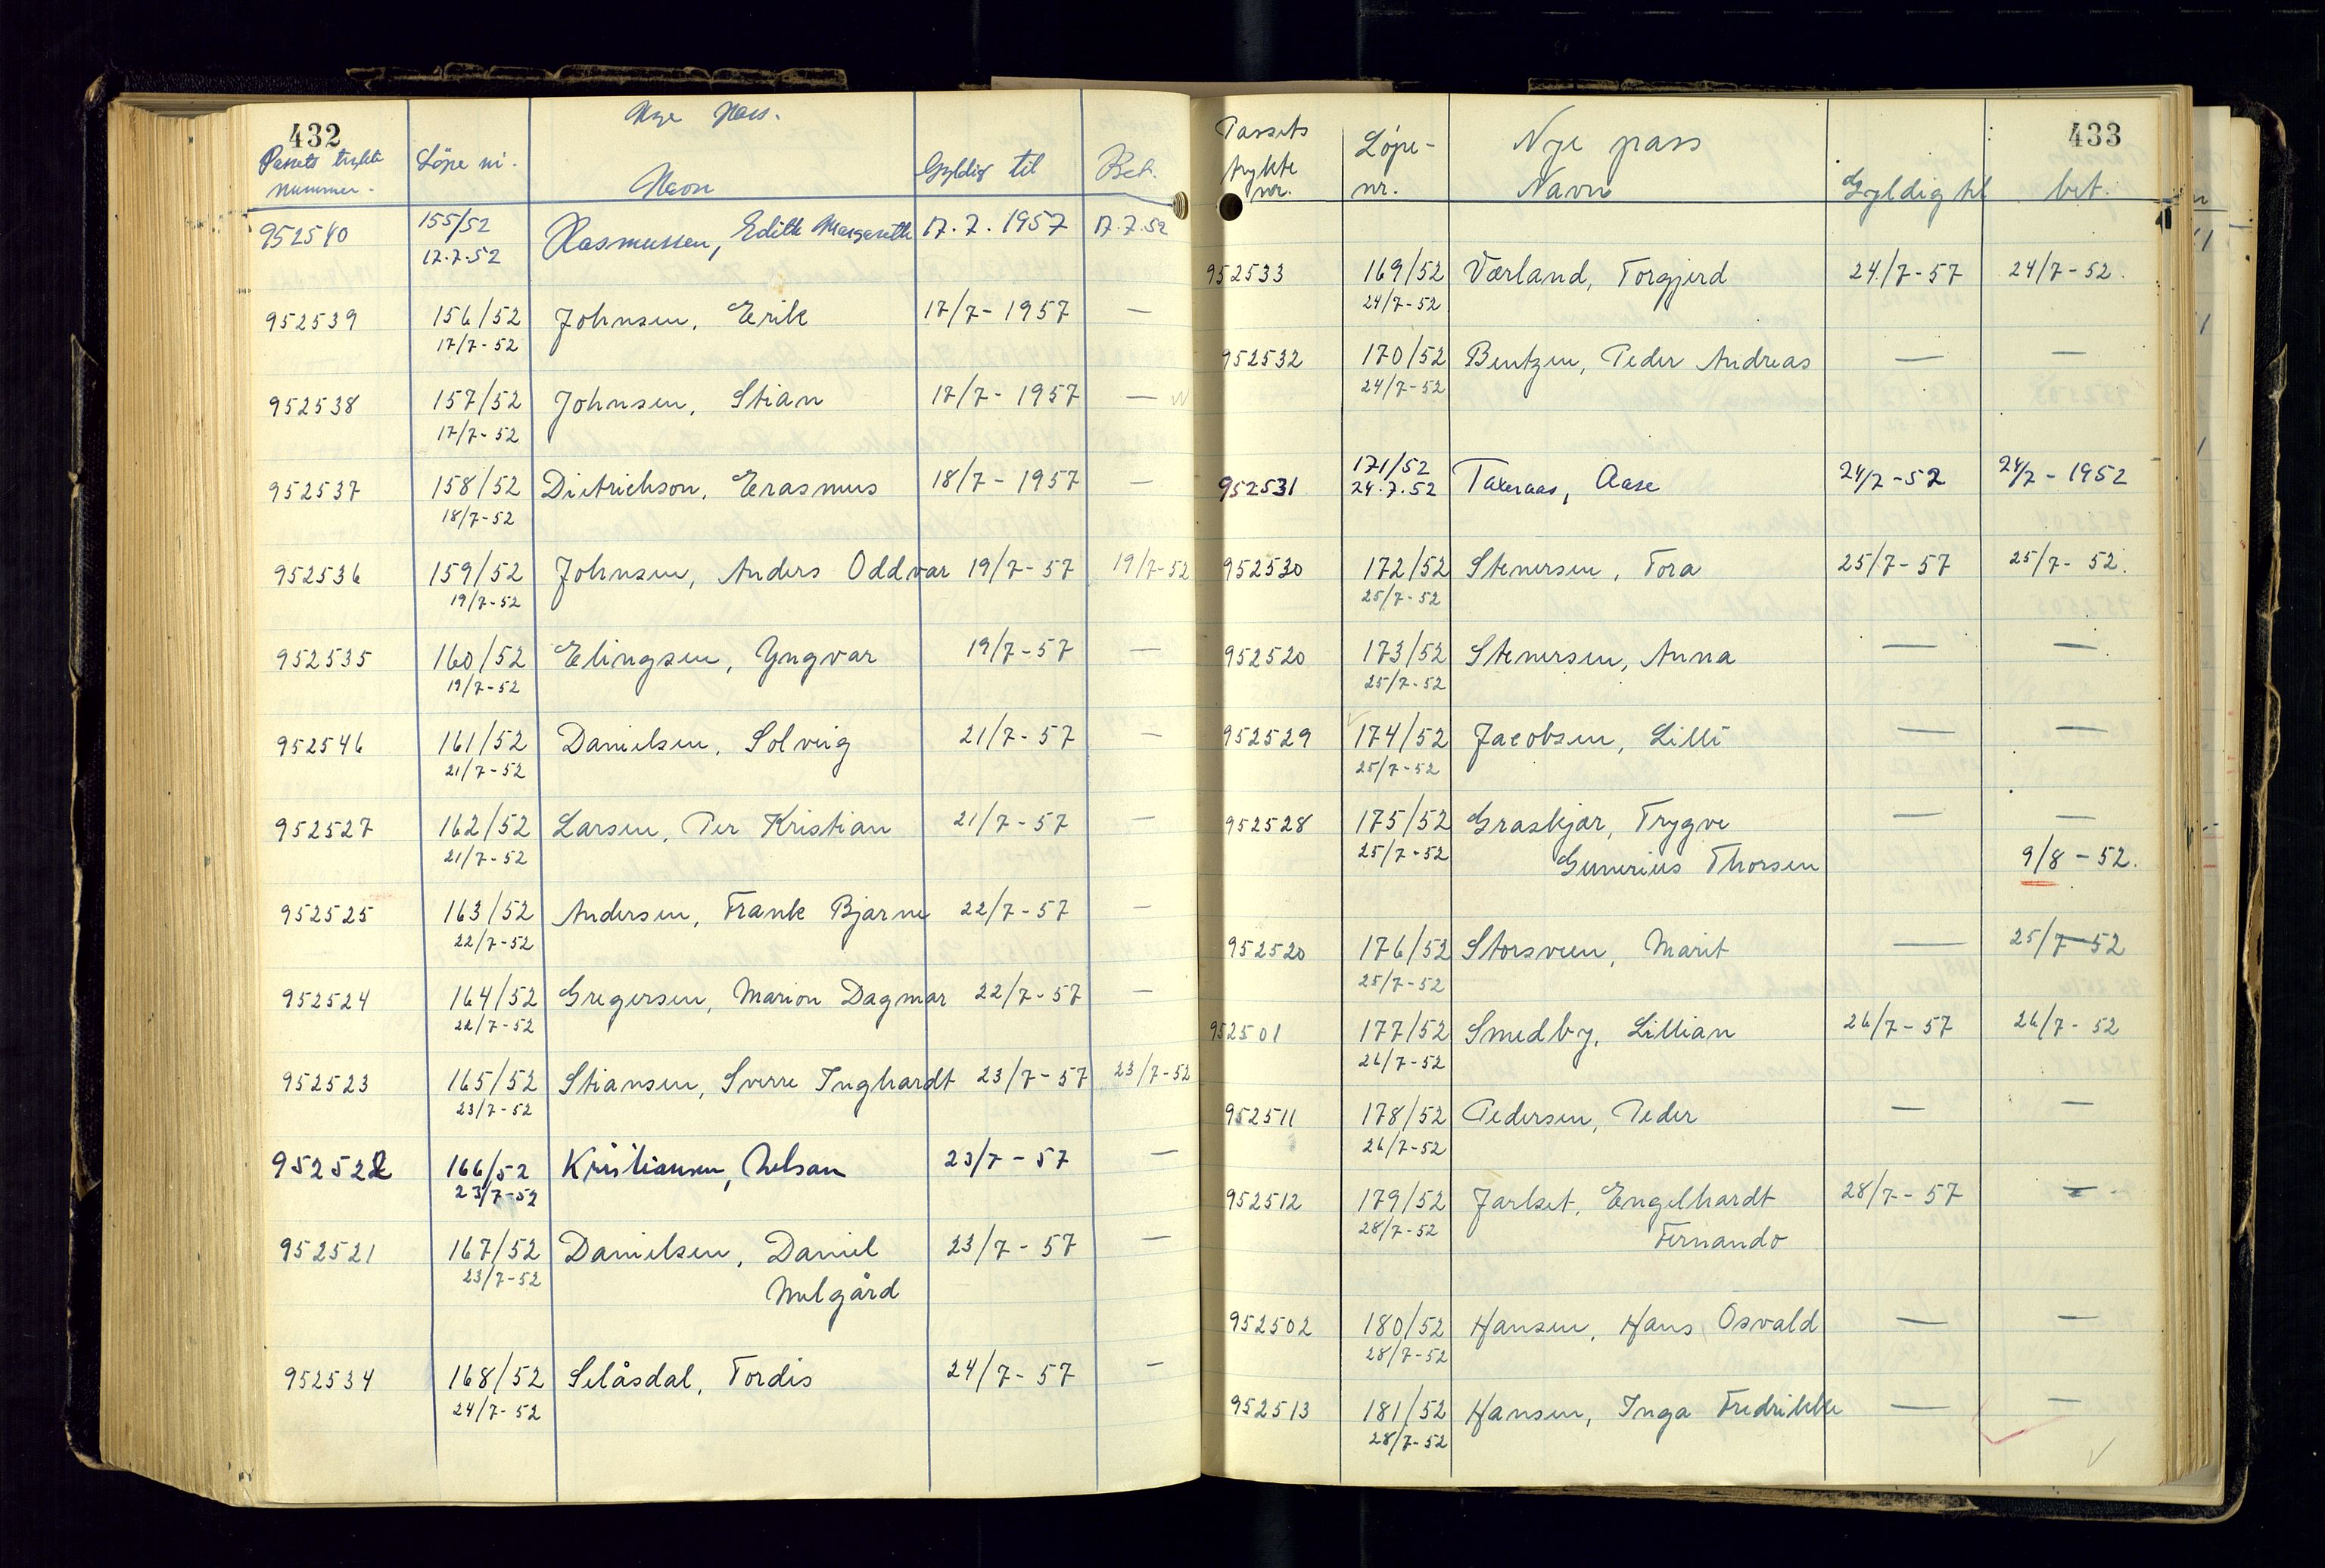 432
Nye Pass.
Passets trykte nummer. Löpe nr. Navn Gyldig til Bet.
952540 155/52 Rasmussen, Edith Margarethe 17.7.1957 17.7.52
17.7.52
952539 156/52 Johnsen, Erik 17/7-1957 —
17/7-52
952538 157/52 Johnsen, Stian 17/7-1957 —
17/7-52
952537 158/52 Dietrichson, Erasmus 18/7-1957 —
18/7-52
952536 159/52 Johnsen, Anders Oddvar 19/7-57 19/7-52
19/7-52
952535 160/52 Elingsen, Yngvar 19/7-57 —
19/7-52
952546 161/52 Danielsen, Solveig 21/7-57 —
21/7-52
952527 162/52 Larsen, Per Kristian 21/7-57 —
21/7-52
952525 163/52 Andersen, Frank Bjarne 22/7-57 —
22/7-52
952524 164/52 Gregersen, Marion Dagmar 22/7-57 —
22/7-52
952523 165/52 Stiansen, Sverre Inghardt 23/7-57 23/7-52
23/7-52
952522 166/52 Kristiansen, 23/7-57 —
23/7-52
952521 167/52 Danielsen, Daniel 23/7-57 —
23/7-52 Melgård
952534 168/52 Selåsdal, Tordis 24/7-57 —
24/7-52
433
Passets trykte nr. Löpe-nr. Nye pass Navn Gyldig til bet.
952533 169/52 Værland, Torgjerd 24/7-57 24/7-52.
24/7-52
952532 170/52 Bentzen, Peder Andreas — —
24/7-52
952531 171/52 Taxeraas, Aase 24/7-52 24/7-1952
24.7.52
952530 172/52 Stenersen, Tora 25/7-57 25/7-52.
25/7-52
952520 173/52 Stenersen, Anna — —
25/7-52
952529 174/52 Jacobsen, Lilli — —
25/7-52
952528 175/52 Graskjær, Trygve — —
25/7-52 Gunerius Thorsen 9/8-52.
952520 176/52 Storsveen, Marit — 25/7-52
25/7-52
952501 177/52 Smedby, Lillian 26/7-57 26/7-52
26/7-52
952511 178/52 Pedersen, Peder — —
26/7-52
952512 179/52 Jarlset, Engelhardt 28/7-57 —
28/7-52 Fernando
952502 180/52 Hansen, Hans Osvald — —
28/7-52
952513 181/52 Hansen, Inga Fredrikke — —
28/7-52